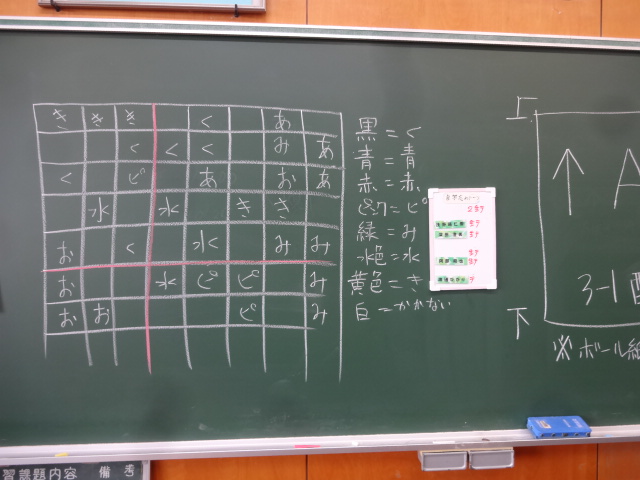 き き き く あ
く く く み あ
く ピ あ お あ
水 水 き き
お く 水 み み
お 水 ピ ピ み
お お ピ み
黒=く
青=青
赤=赤
ピンク=ピ
緑=み
水色=水
黄色=き
白=かかない
上
↑ A
3-1
下
※ボール紙
習課題内容 備考